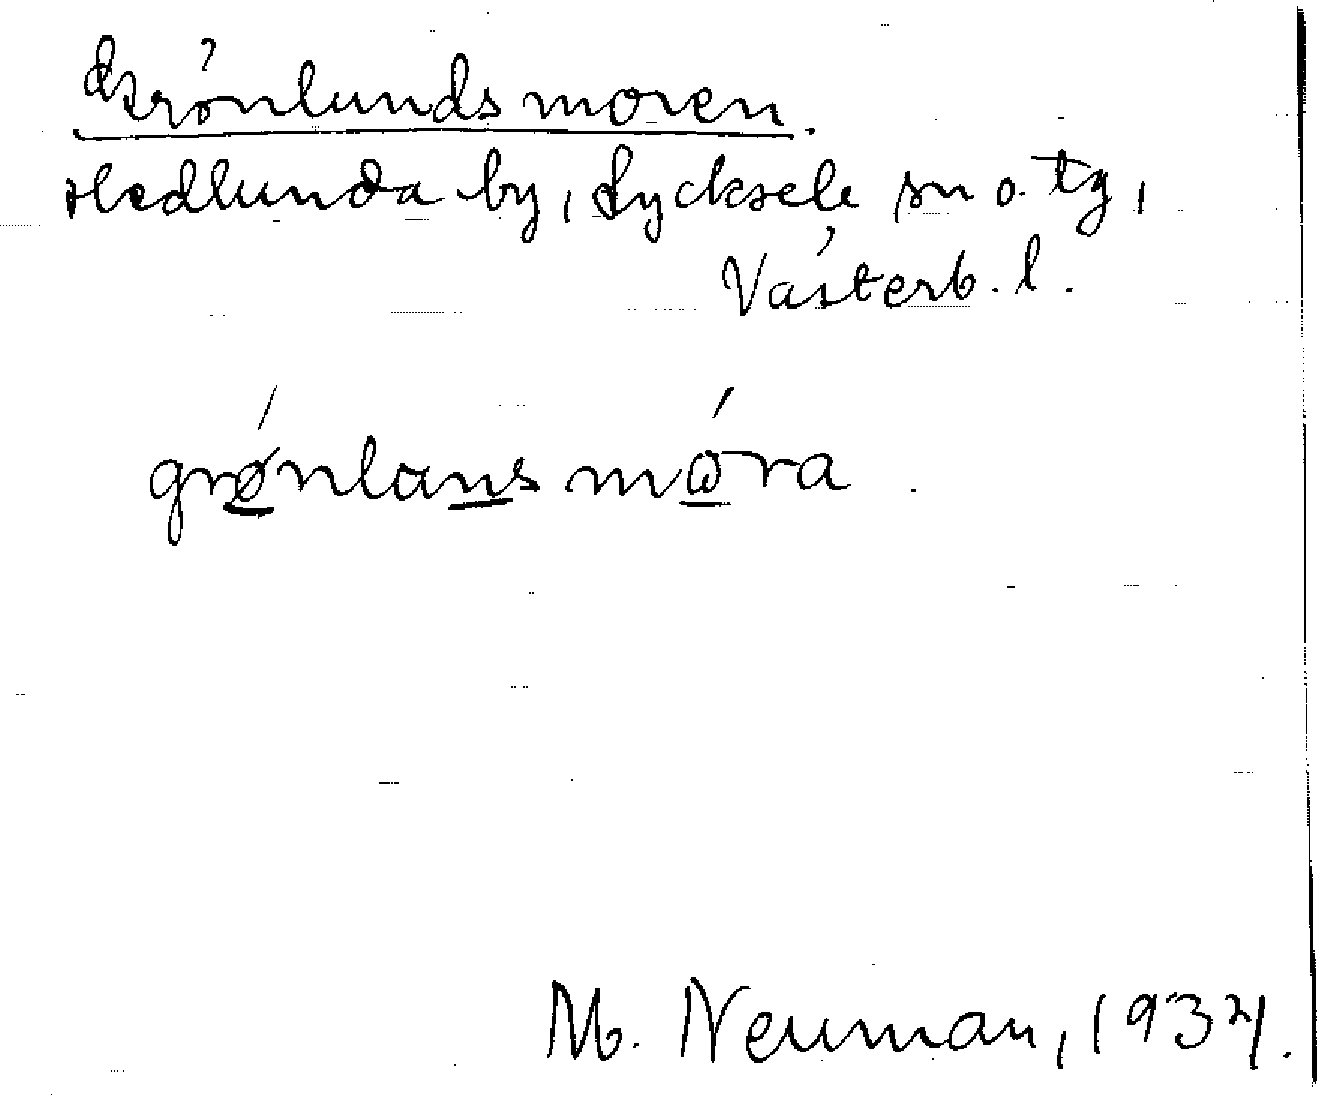 Grönlundsmoren.
Hedlunda by, Lycksele sn o. tg,
Västerb. l.
grǿ̲nlan̲s̲ mώ̲ra.
M. Neuman, 1934.